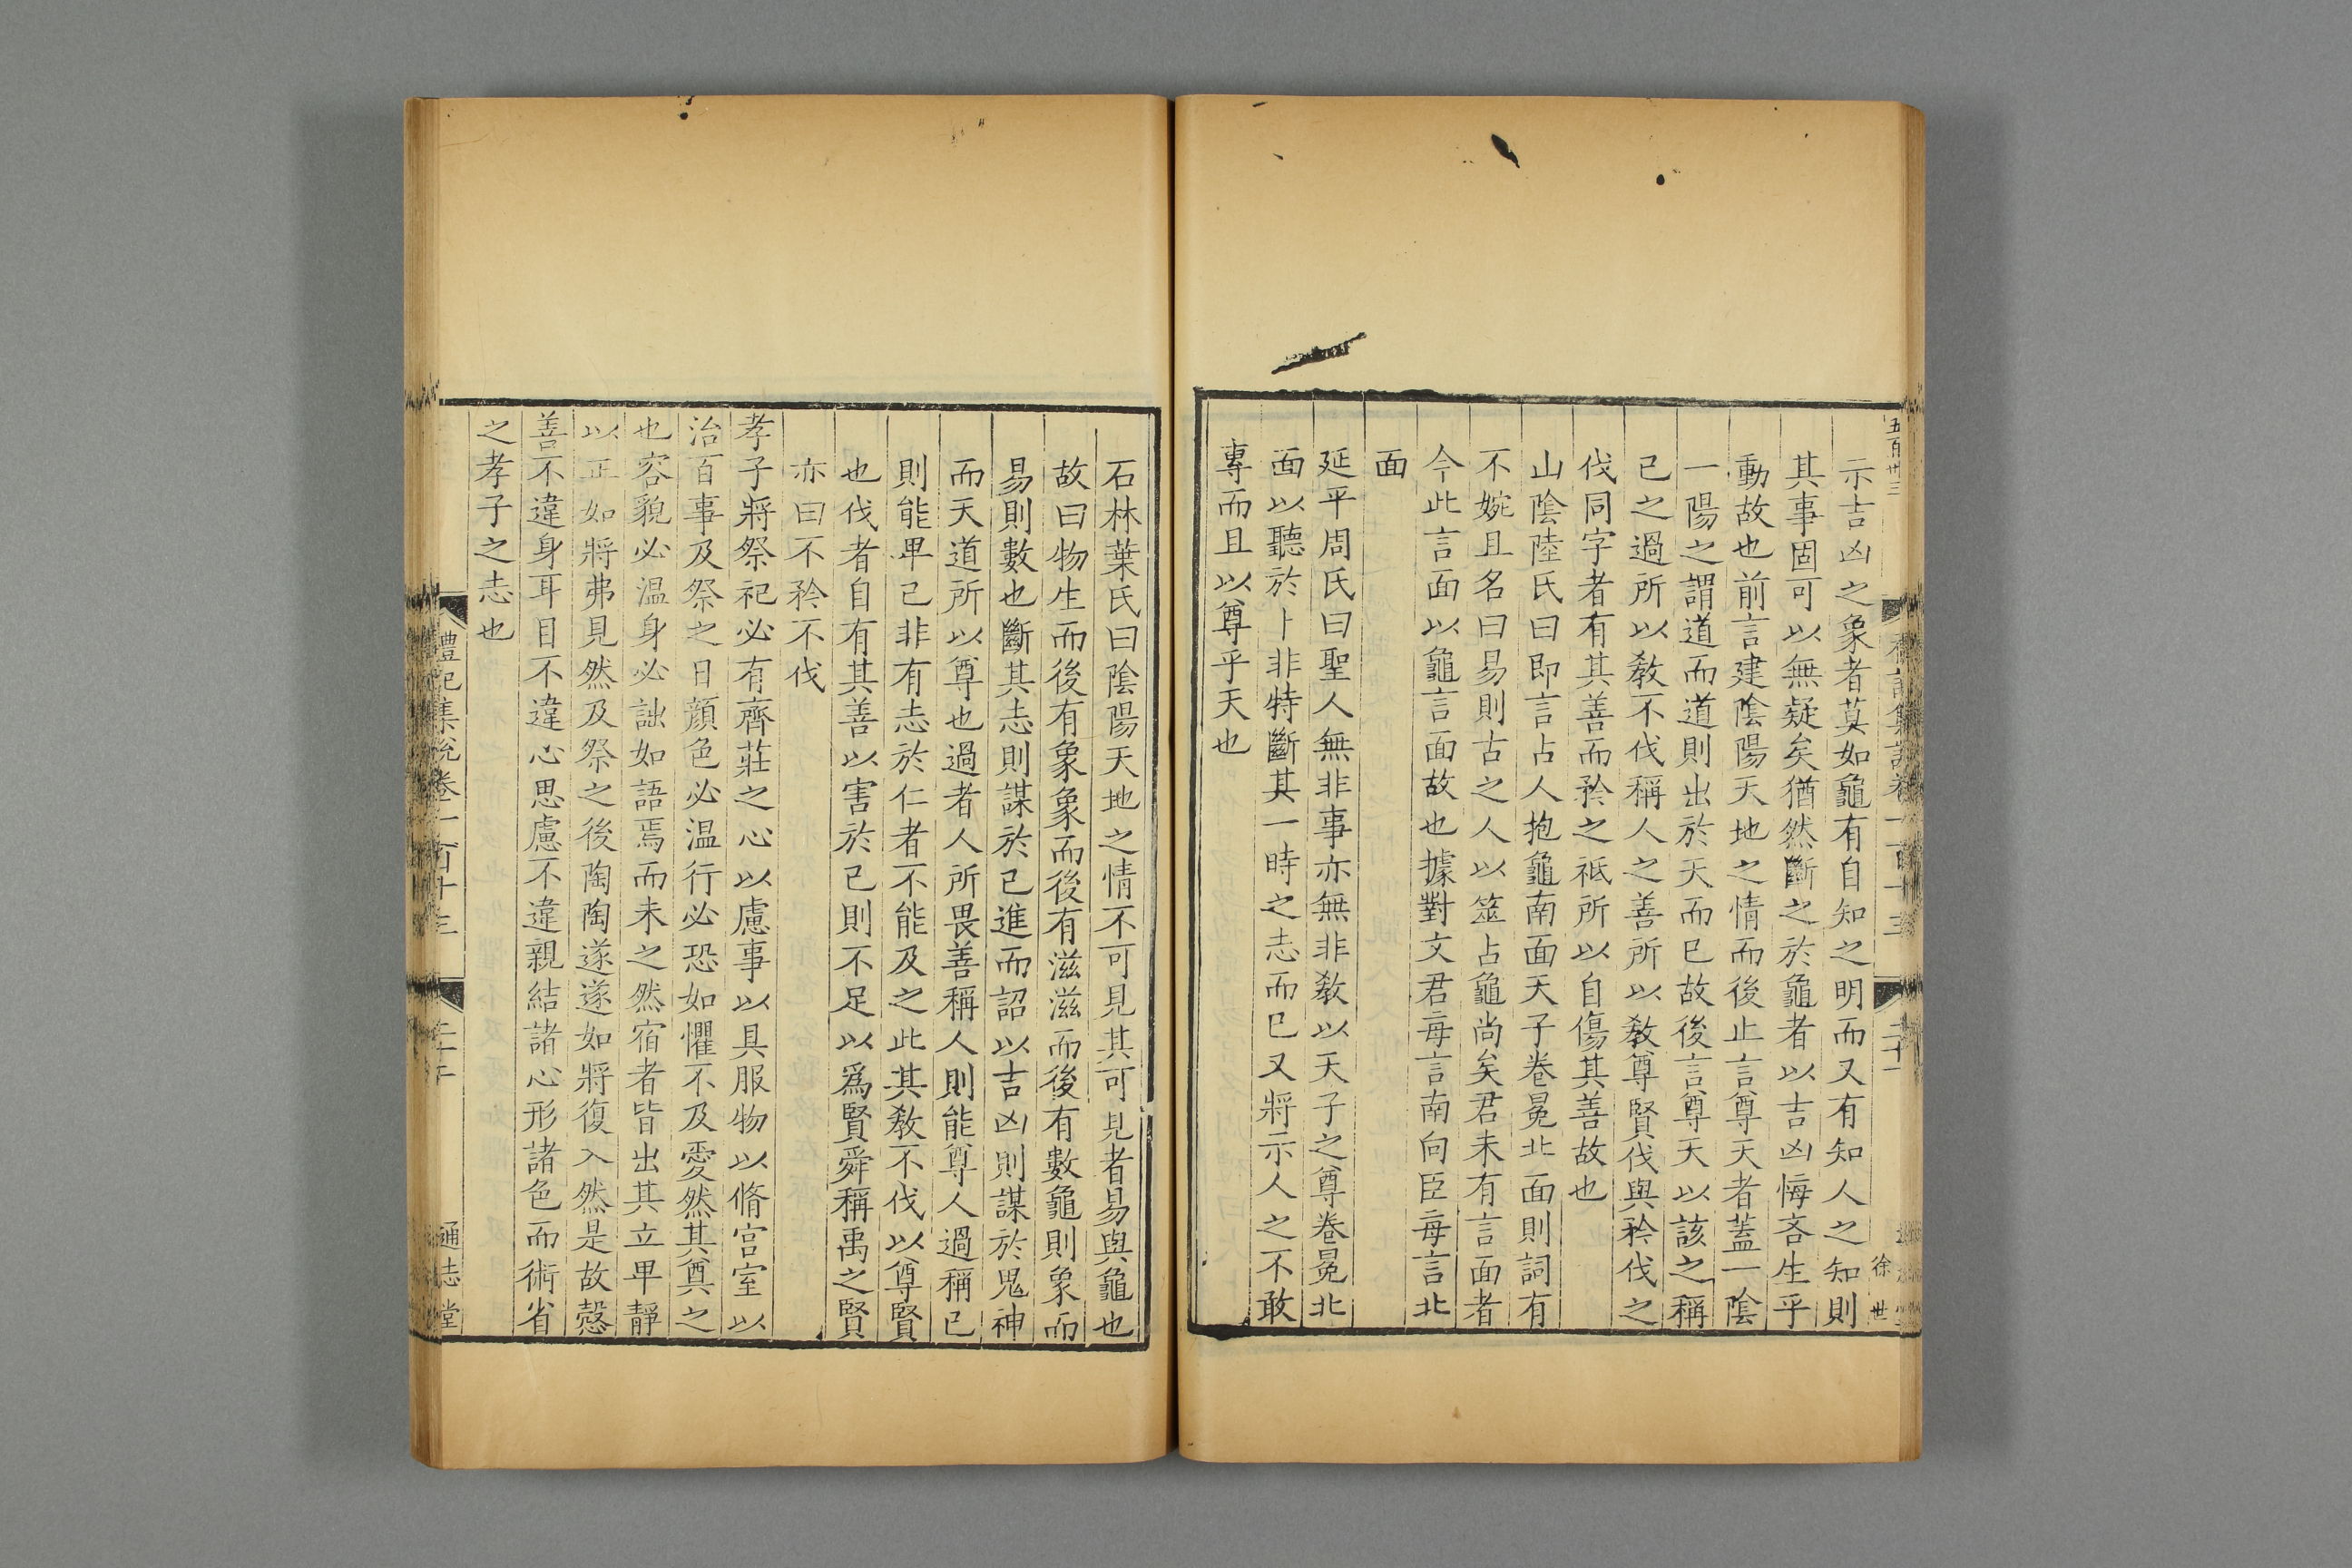 五百卅三
示吉凶之象者莫如龜有自知之明而又有知人之知則
其事固可以無疑矣猶然斷之於龜者以吉凶悔吝生乎
動故也前言建陰陽天地之情而後止言尊天者蓋一陰
一陽之謂道而道則出於天而已故後言尊天以該之稱
己之過所以敎不伐稱人之善所以敎尊賢伐與矜伐之
伐同字者有其善而矜之祗所以自傷其善故也
山陰陸氏曰即言占人抱龜南面天子卷冕北面則詞有
不婉且名曰易則古之人以筮占龜尚矣君未有言面者
今此言面以龜言面故也據對文君每言南向臣每言北
面
延平周氏曰聖人無非事亦無非敎以天子之尊卷冕北
面以聽於卜非特斷其一時之志而已又將示人之不敢
專而且以尊乎天也
禮記集說卷一百十三
二十一
徐世
石林葉氏曰陰陽天地之情不可見其可見者易與龜也
故曰物生而後有象象而後有滋滋而後有數龜則象而
易則數也斷其志則謀於己進而詔以吉凶則謀於鬼神
而天道所以尊也過者人所畏善稱人則能尊人過稱己
則能卑己非有志於仁者不能及之此其敎不伐以尊賢
也伐者自有其善以害於己則不足以爲賢舜稱禹之賢
亦曰不矜不伐
孝子將祭祀必有齊莊之心以慮事以具服物以脩宮室以
治百事及祭之日顏色必温行必恐如懼不及愛然其奠之
也容貌必温身必詘如語焉而未之然宿者皆出其立卑靜
以正如將弗見然及祭之後陶陶遂遂如將復入然是故慤
善不違身耳目不違心思慮不違親結諸心形諸色而術省
之孝子之志也
禮記集說卷一百十三
通志堂